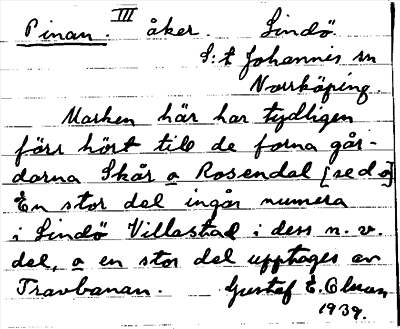 Pinan. III åker. Lindö.
S:t Johannis sn
Norrköping.
Marken här har tydligen
förr hört till de forna går-
darna Skår o Rosendal [se d o]
En stor del ingår numera
i Lindö Villastad i dess n. v.
del, o en stor del upptages av
Travbanan. Gustaf E. Olsson
1939.